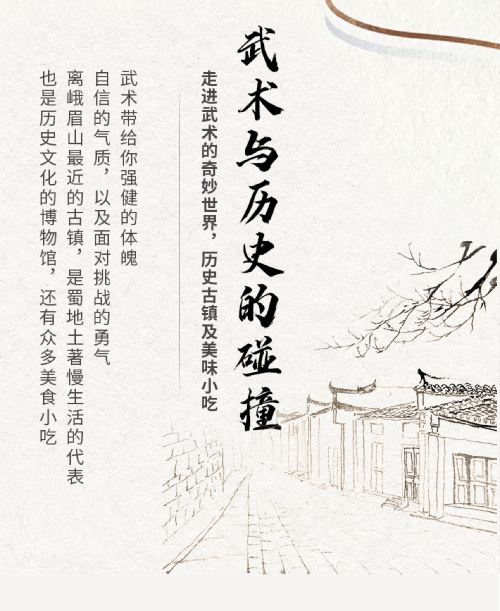 武术与历史的碰撞
走进武术的奇妙世界，历史古镇及美味小吃
武术带给你强健的体魄
自信的气质，以及面对挑战的勇气
离峨眉山最近的古镇，是蜀地土著慢生活的代表
也是历史文化的博物馆，还有众多美食小吃